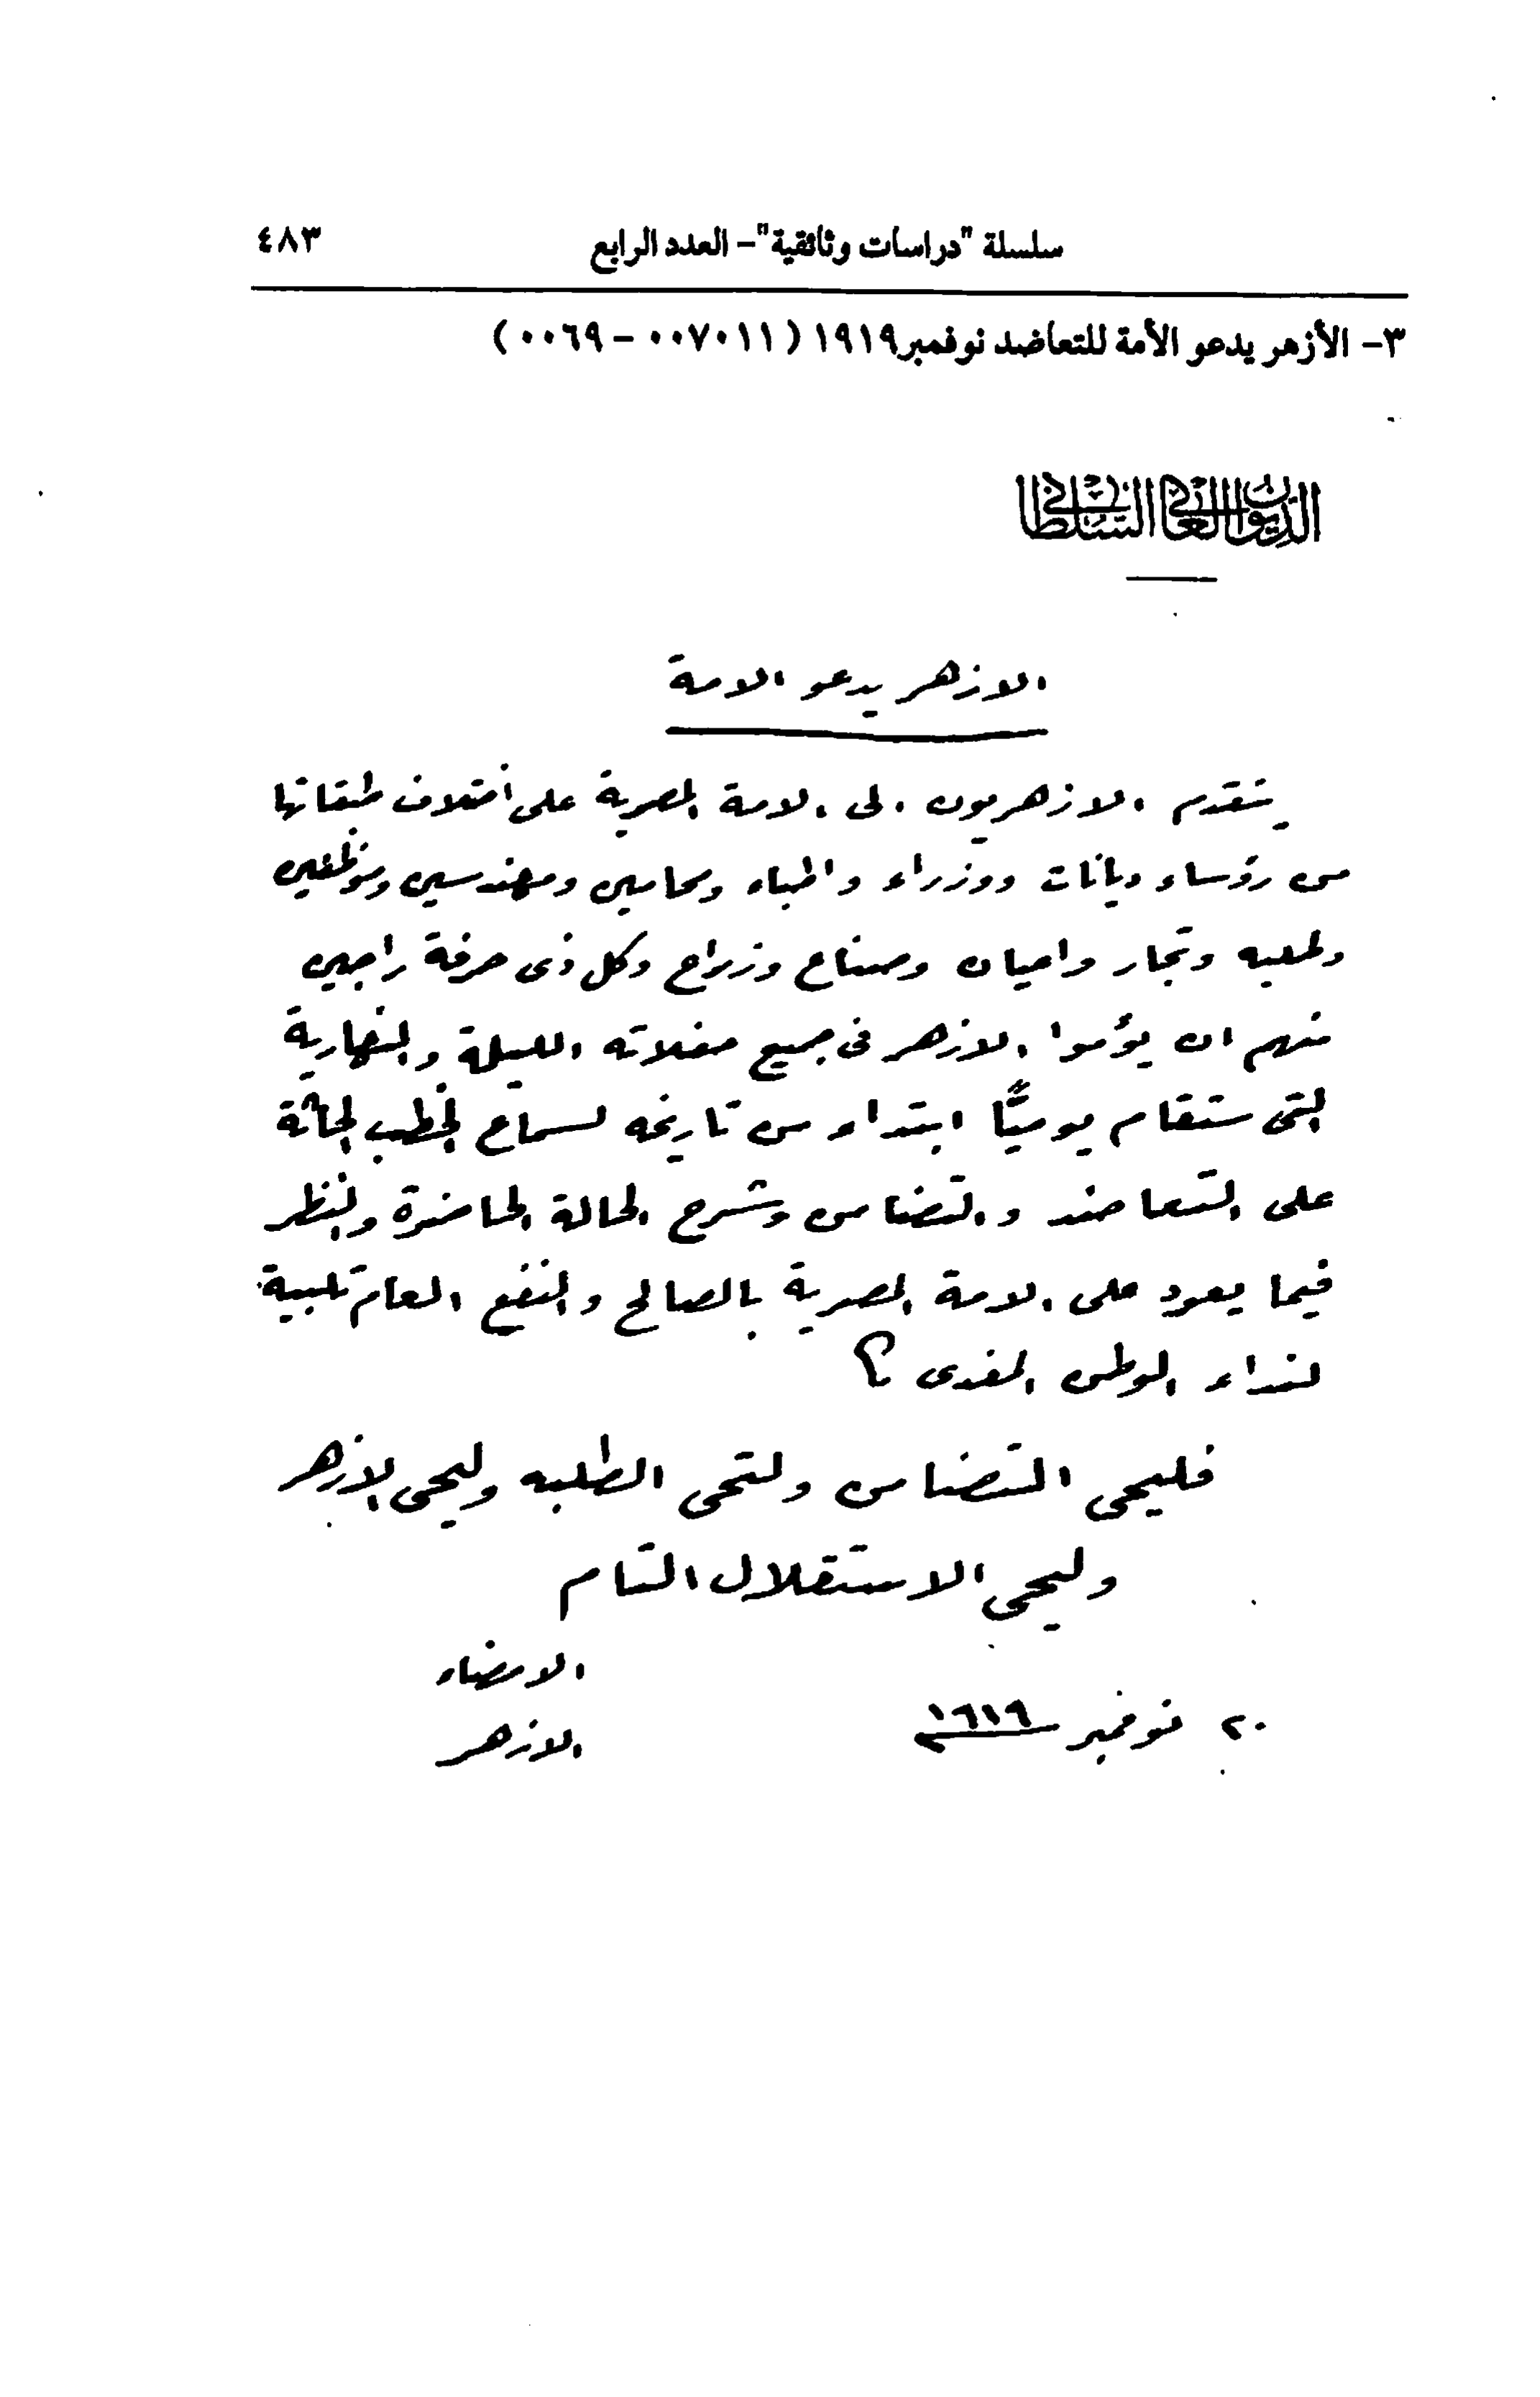 سلسلة "دراسات وثائقية"- العدد الرابع ٤٨٣
٣- الأزهر يدعو الأمة للتعاضد نوفمبر١٩١٩ (٠٠٧٠١١ - ٠٠٦٩)
الديوان العالي السلطاني
الازهر يدعو الامة
يتقدم الازهريون الى الامة المصرية على أختلاف طبقاتها
من رؤساء ديانات ووزراء واطباء ومحامين ومهندسين وموظفين
وطلبه وتجار واعيان وصناع وزراع وكل ذى حرفة راجين
منهم ان يؤموا الازهر فى جميع حفلاته الليلة والنهارية
التى ستقام يوميًّا ابتداء من تاريخه لسماع الخطب الحاثة
على التعاضد والتضامن وشرح الحالة الحاضرة والنظر
فيما يعود على الامة المصرية بالصالح والنفع العام تلبية
لنداء الوطن المفدى
فليحى التضامن ولتحى الطلبه وليحى الازهر
وليحى الاستقلال التام
الامضاء
٢٠ نوفمبر ١٩١٩ الازهر